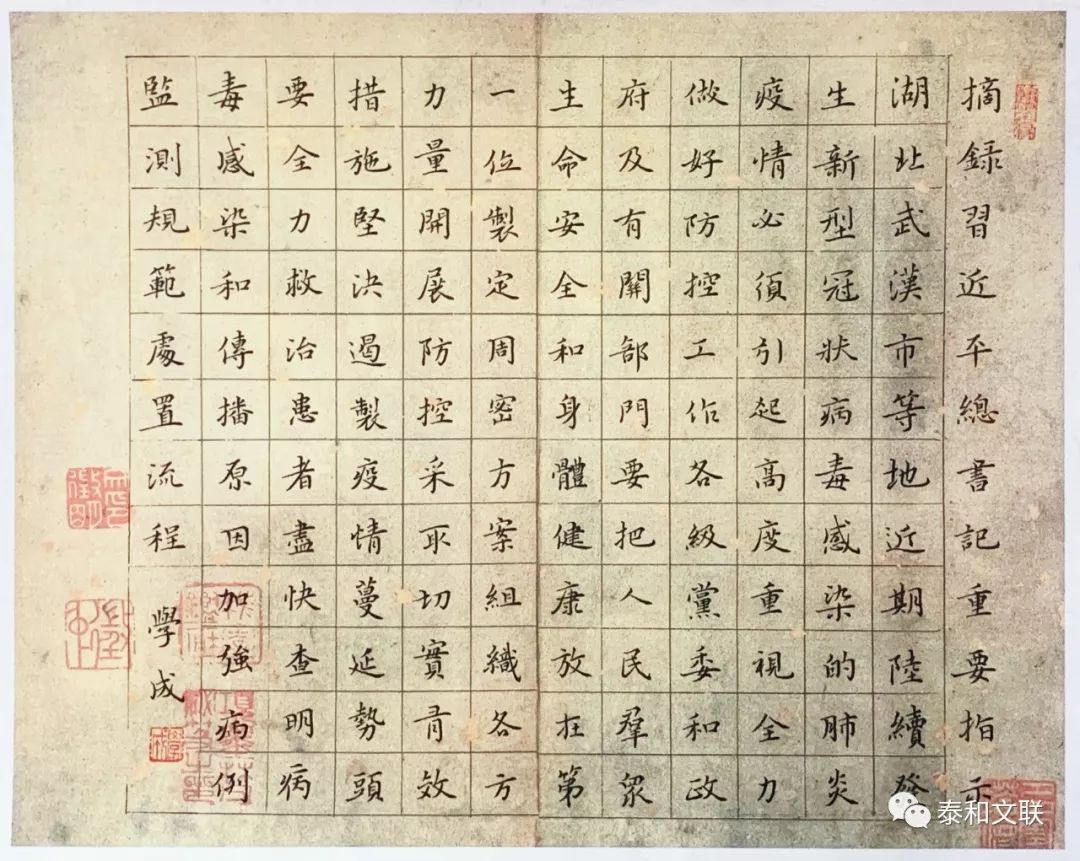 摘録習近平總書記重要指示
湖北武漢市等地近期陸續發
生新型冠狀病毒感染的肺炎
疫情必須引起高度重視全力
做好防控工作各級黨委和政
府及有關部門要把人民羣眾
生命安全和身體健康放在第
一位製定周密方案組織各方
力量開展防控采取切實有效
措施堅決遏製疫情蔓延勢頭
要全力救治患者盡快查明病
毒感染和傳播原因加強病例
監測規範處置流程
學成
泰和文联